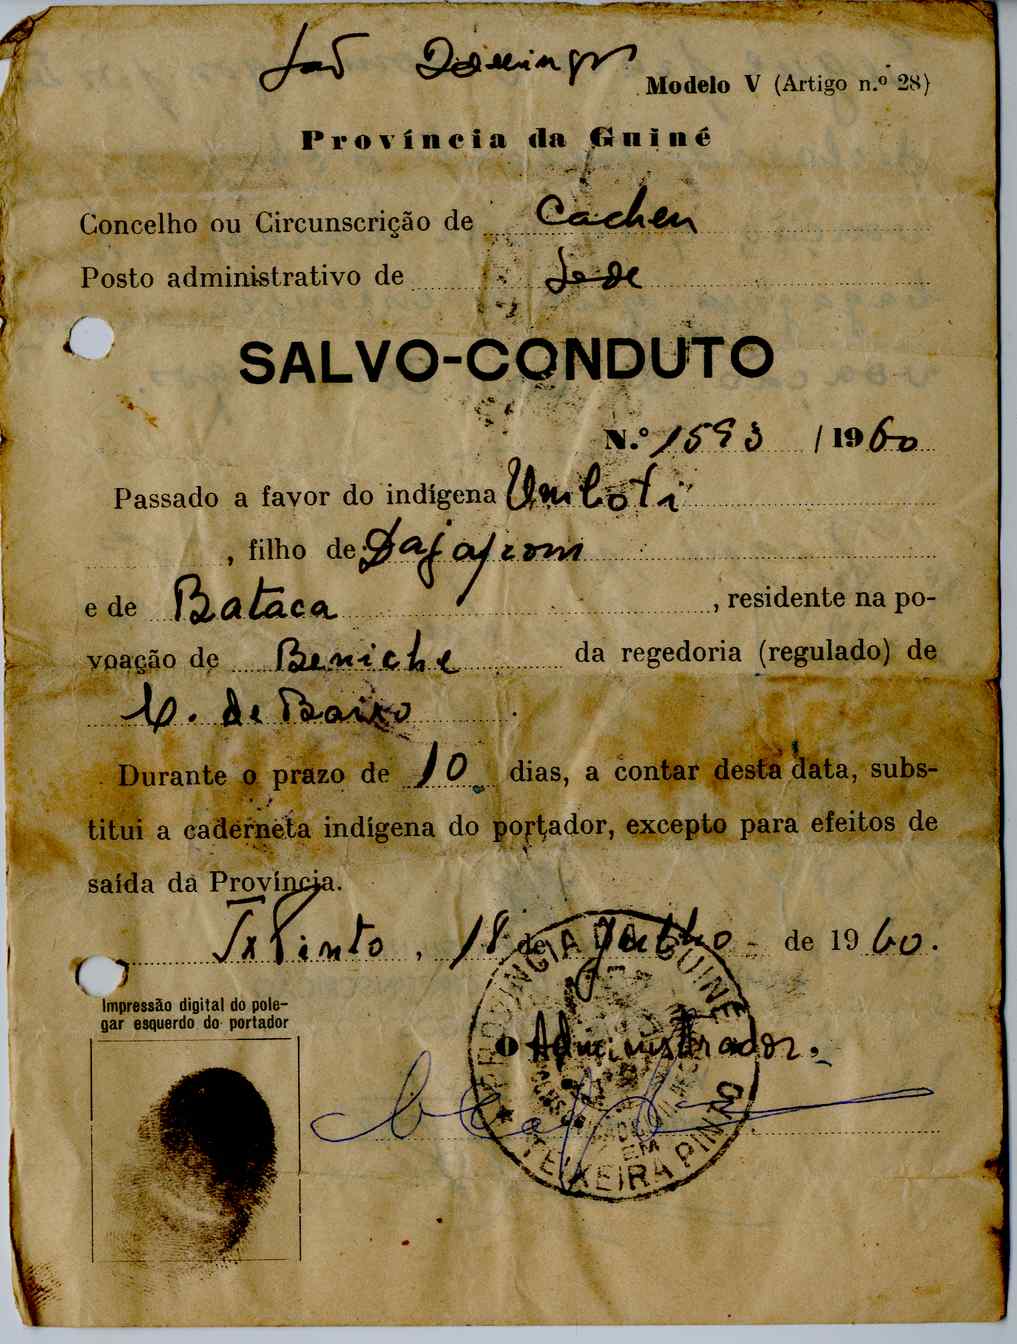 João Domingos
Modelo V (Artigo n.º 28)
Província da Guiné
Concelho ou Circunscrição de Cacheu
Posto administrativo de Sede
SALVO-CONDUTO
N.º 1593 / 1960
Passado a favor do indígena Umboti
, filho de
e de Bataca , residente na po-
voação de Beniche da regedoria (regulado) de
C. de Baixo
Durante o prazo de 10 dias, a contar desta data, subs-
titui a caderneta indígena do portador, excepto para efeitos de
saída da Província.
Tx Pinto, 18 de Julho de 1960.
Impressão digital do pole-
gar esquerdo do portador
O Administrador.
PROVÍNCIA DA GUINÉ
EM
TEIXEIRA PINTO